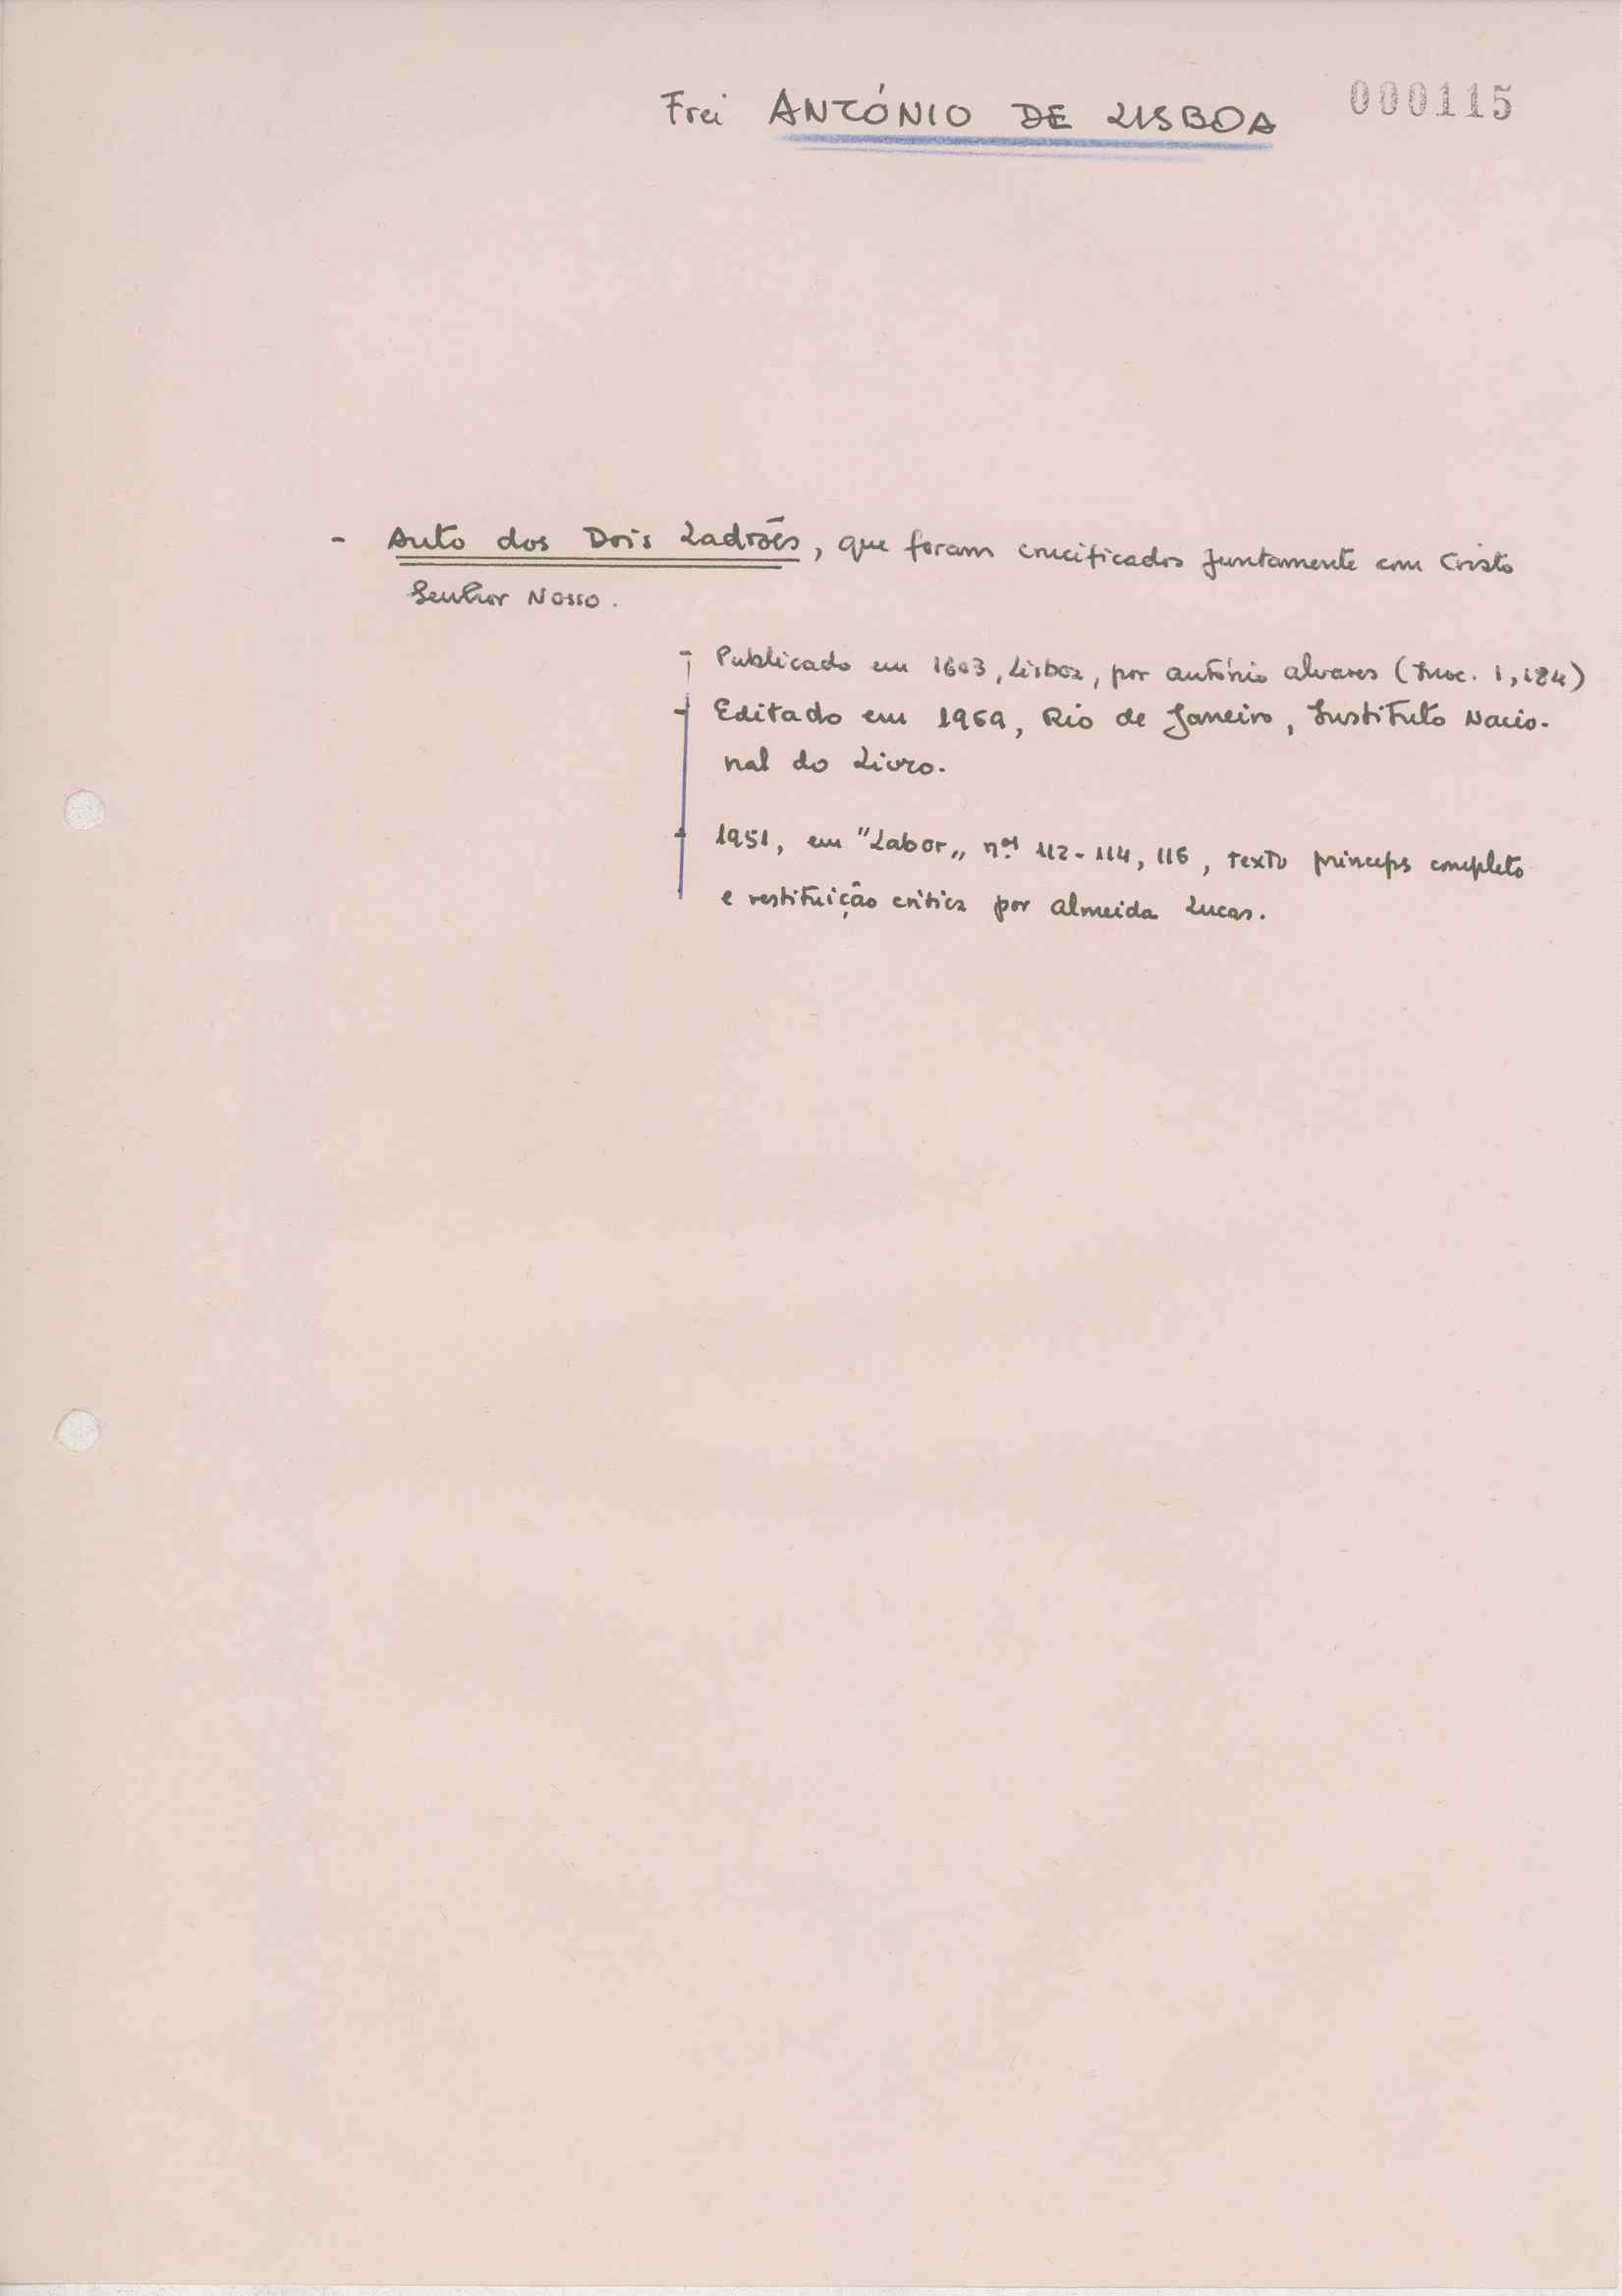 Frei ANTÓNIO DE LISBOA 000115
- Auto dos Dois Ladrões, que foram crucificados juntamente com Cristo
Senhor Nosso.
- Publicado em 1603, Lisboa, por António Alvares (Inoc. 1, 184)
- Editado em 1969, Rio de Janeiro, Instituto Nacio-
nal do Livro.
- 1951, em "Labor„ n.os 112-114, 116, texto princeps completo
e restituição crítica por Almeida Lucas.